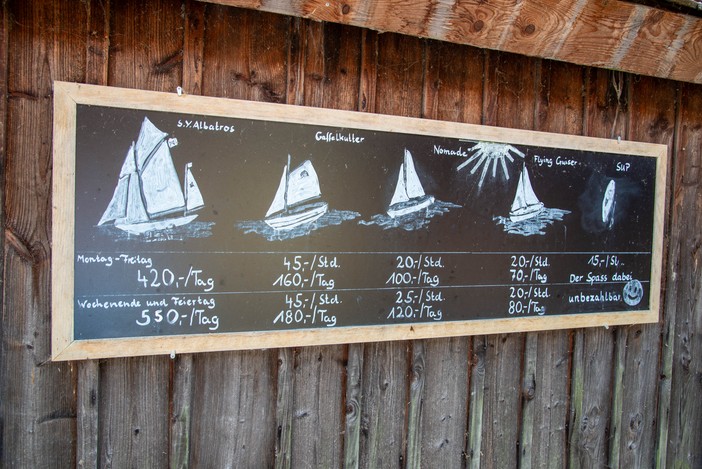 S.Y. Albatros
Gaffelkutter
Nomade
Flying Cruiser
SUP
Montag-Freitag
420,-/Tag
45,-/Std.
160,-/Tag
20,-/Std.
100,-/Tag
20,-/Std.
70,-/Tag
15,-/St..
Der Spass dabei
unbezahlbar
Wochenende und Feiertag
550,-/Tag
45,-/Std.
180,-/Tag
25,-/Std.
120,-/Tag
20,-/Std
80,-/Tag